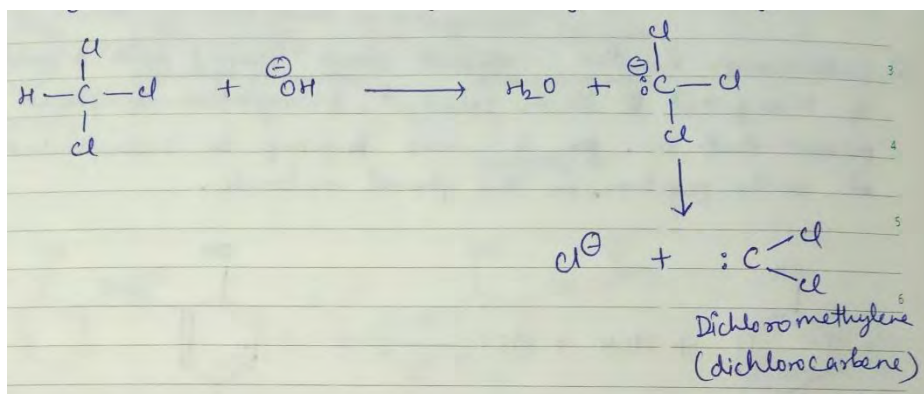 Cl Cl
H — C — Cl + ⊖OH ⟶ H2O + ⊖:C — Cl
Cl Cl
↓
Cl⊖ + :C Cl
Cl
Dichloromethylene
(dichlorocarbene)
3
4
5
6